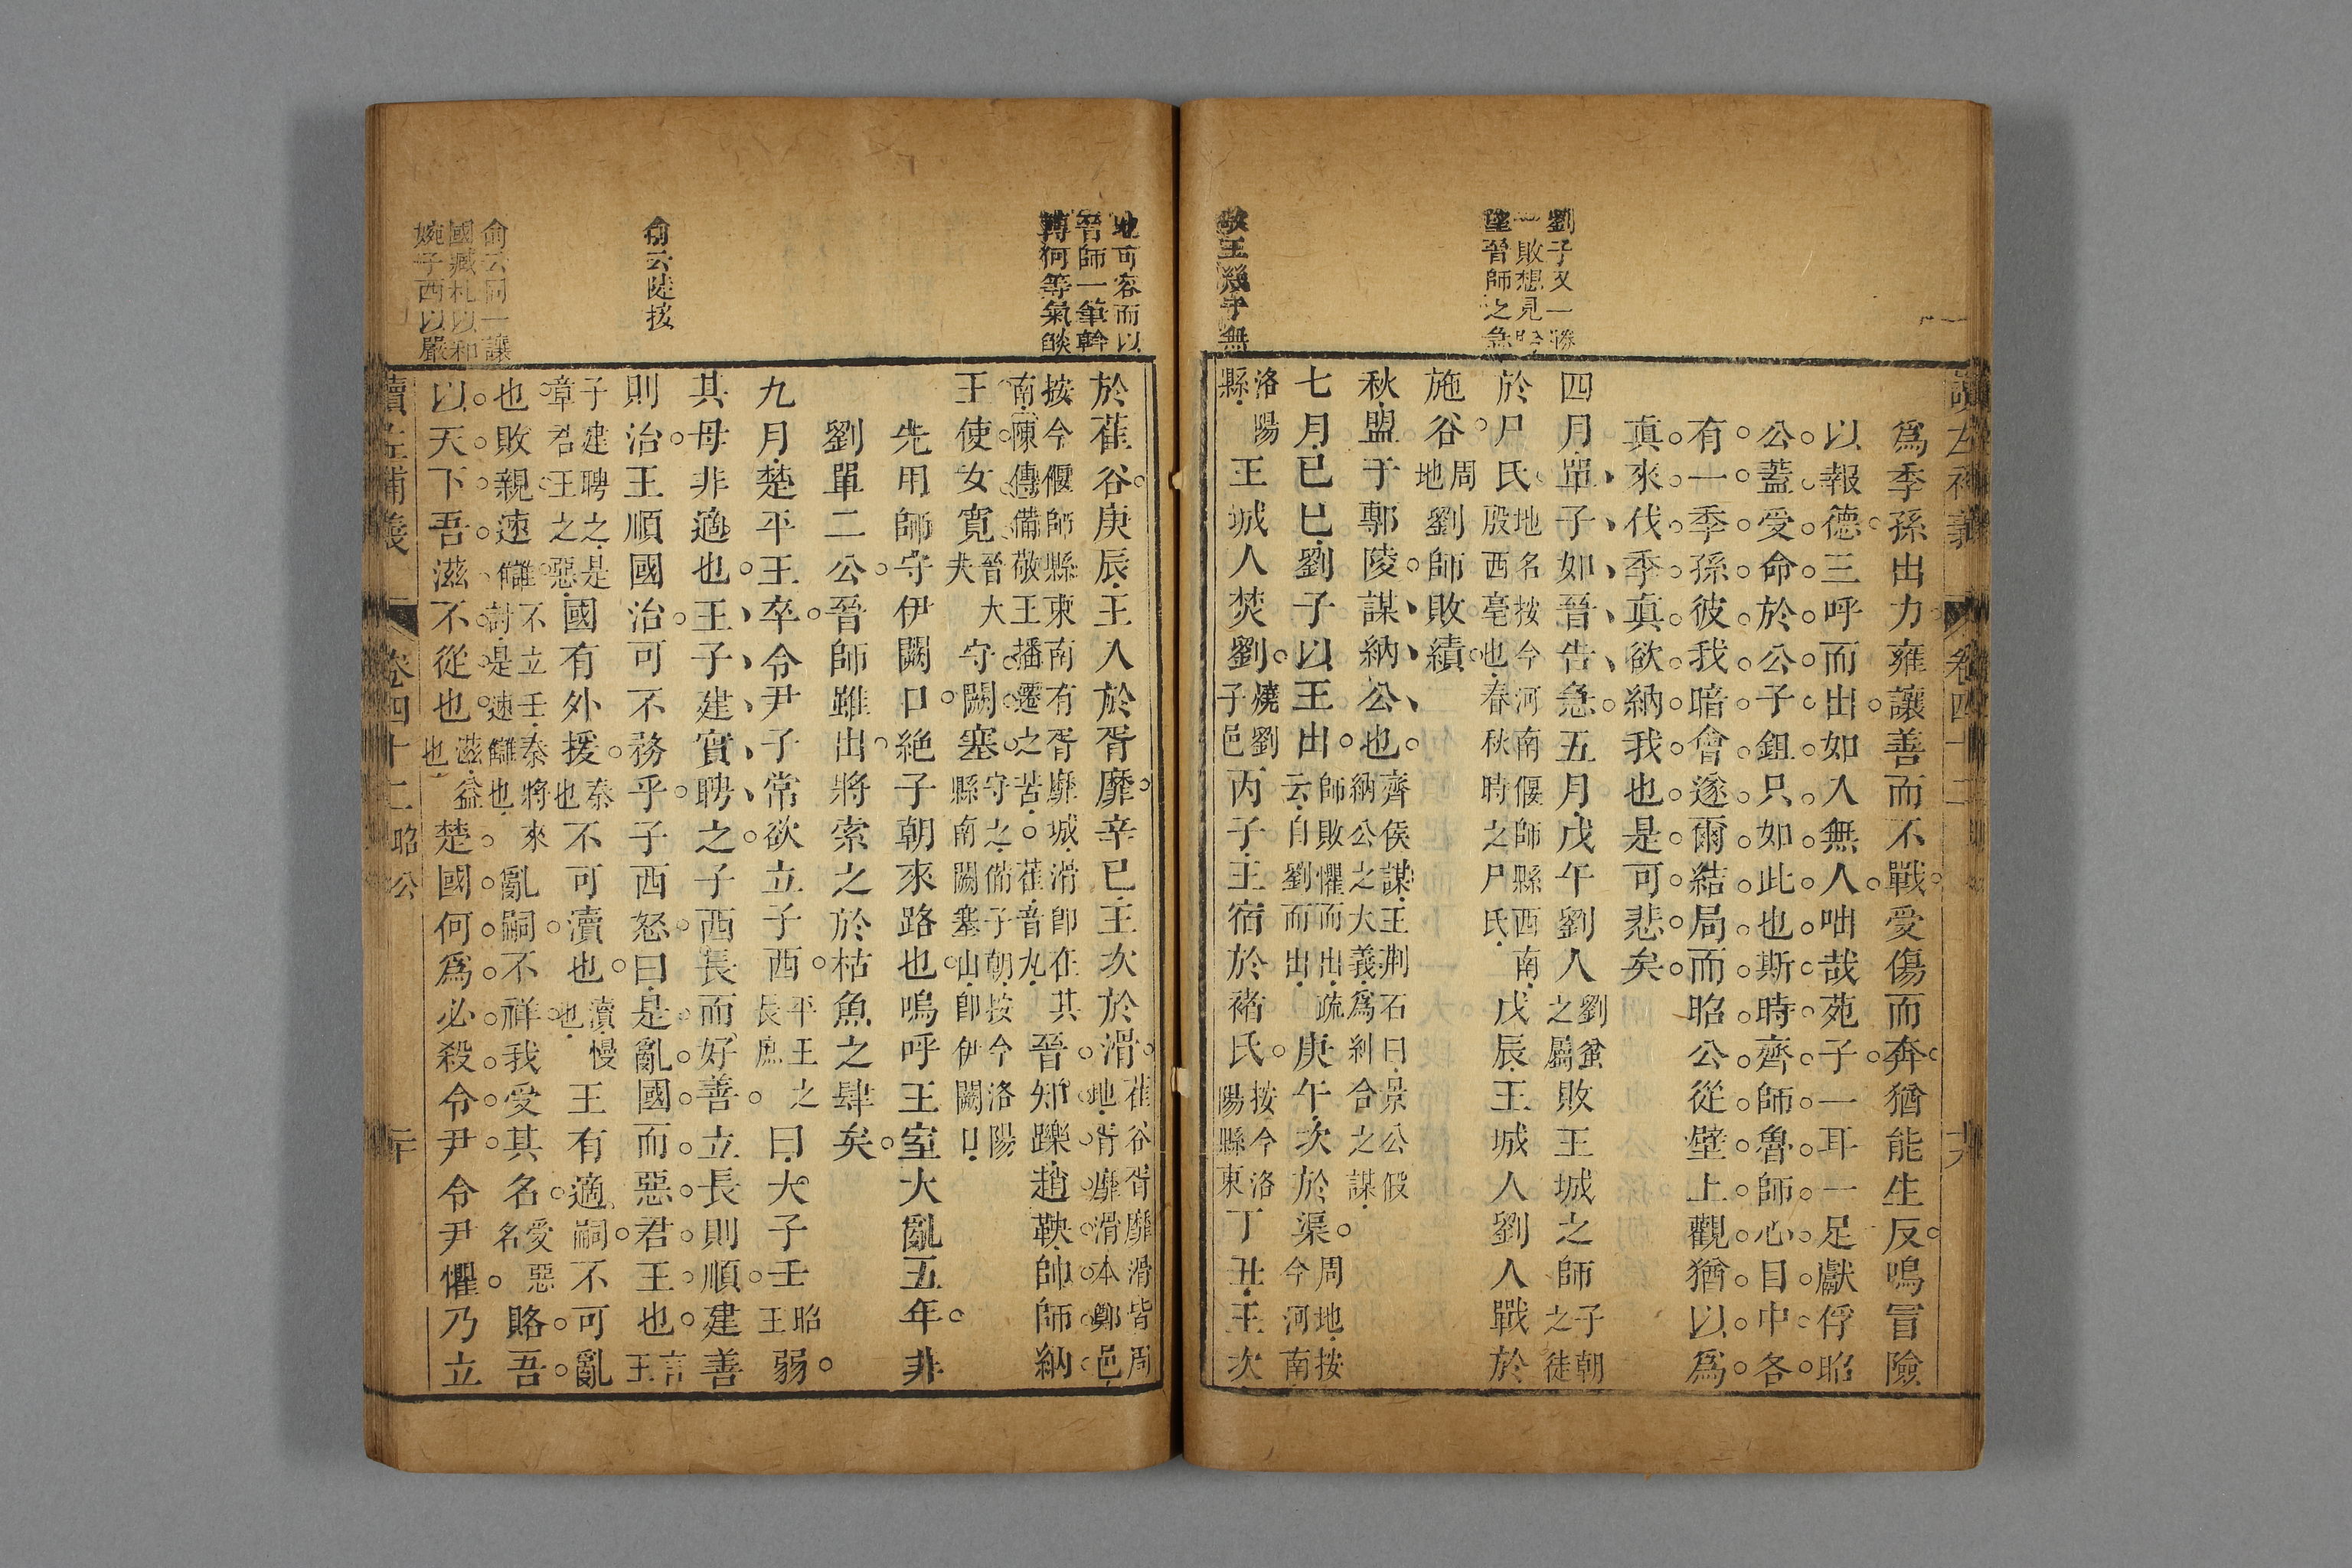 劉子又一勝
一敗想見
望晉師之急
敬王幾乎無
讀左補義
卷四十二
爲季孫出力雍讓善而不戰受傷而奔猶能生反鳴冒險
以報德三呼而出如入無人咄哉苑子一耳一足獻俘昭
公蓋受命於公子鉏只如此也斯時齊師魯師心目中各
有一季孫彼我暗會遂爾結局而昭公從壁上觀猶以爲
真來伐季真欲納我也是可悲矣
四月單子如晉告急五月戊午劉人劉蚠之屬敗王城之師子朝之徒
於尸氏地名按今河南偃師縣西南殷西亳也春秋時之尸氏戊辰王城人劉人戰於
施谷周地劉師敗績
秋盟于鄟陵謀納公也齊侯謀王荆石曰景公假納公之大義爲糾合之謀
七月己巳劉子以王出師敗懼而出疏云自劉而出庚午次於渠周地按今河南
洛陽縣王城人焚劉燒劉子邑丙子王宿於褚氏按今洛陽縣東丁丑王次
地可容而以
晉師一筆斡
轉何等氣燄
俞云陡接
俞云同一讓
國臧札以和
婉子西以嚴
於萑谷庚辰王入於胥靡辛巳王次於滑萑谷胥靡滑皆周地胥靡滑本鄭邑
按今偃師縣東南有胥靡城滑即在其南陳傳備敬王播遷之苦萑音丸晉知躒趙鞅帥師納
王使女寬晉大夫守闕塞守之備子朝按今洛陽縣南闕塞山即伊闕口
先用師守伊闕口絶子朝來路也嗚呼王室大亂五年非
劉單二公晉師雖出將索之於枯魚之肆矣
九月楚平王卒令尹子常欲立子西平王之長庶曰大子壬昭王弱
其母非適也王子建實聘之子西長而好善立長則順建善
則治王順國治可不務乎子西怒曰是亂國而惡君王也言王
子建聘之是章君王之惡國有外援不可瀆也秦也瀆慢也王有適嗣不可亂
也敗親速讎不立壬秦將來討是速讎也亂嗣不祥我受其名受惡名賂吾
以天下吾滋不從也滋益也楚國何爲必殺令尹令尹懼乃立
讀左補義
卷四十二
昭公